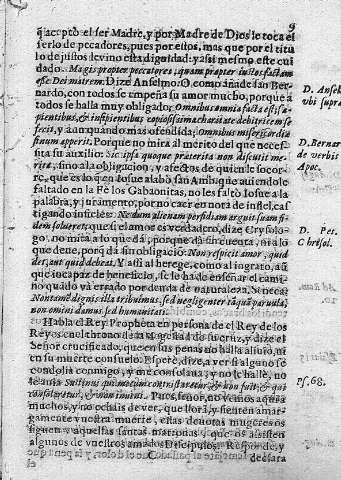 9
q̃ acceptò el ser Madre, y por Madre de Dios le toca el
serlo de pecadores, pues por estos, mas que por el titu
lo de justos le vino esta dignidad: y assi mesmo este cui
dado. Magis propter peccatores, quam propter iustos factam
esse Dei matrem. Dize Anselmo. O como añade san Ber-
nardo, con todos se empeña su amor mucho, porque à
todos se halla muy obligado; Omnibus omnia facta est: sa-
pientibus, & insipientibus copiosissima charitate debitricem se
fecit, y aun quando mas ofendida; Omnibus misericordiæ
sinum apperit. Porque no mira al mérito del que neces-
sita su auxilio: Sic ipsa quoque præterita non discutit me-
rita, sino a la obligacion, y afectos de quien le socor-
re, que es lo q̃ en Iosue alabò san Ambrosio aviendole
faltado en la Fè los Gabaonitas, no les faltò Iosue a la
palabra, y juramento, por no caer en nota de infiel, cas
tigando infieles: Ne dum alienam perfidiam arguit suam fi-
dem solueret; que si el amor es verdadero, dize Crysolo-
go, no mira a lo que dà, porque dà sin cuenta, ni a lo
que deve, porq̃ dà sin obligaciō: Non respicit amor, quid
det, aut quid debeat. Y assi al herege, como al ingrato, aū
que incapaz de beneficio, se le ha de enseñar el cami-
no quādo và errado por deuda de naturaleza. Seneca:
Non tamē dignis illa tribuimus, sed negligenter tāquā parvula,
non omini damus sed humanitati.
Habla el Rey Propheta en persona de el Rey de los
Reyes en el throno de la magestad de su cruz, y dize el
Señor crucificado, que en sus penas no halla alivio, ni
en su muerte consuelo. Esperè, dize, a ver si alguno se
condolia conmigo, y me consolava; y no le hallè, no
le avia Sustinui qui mecum contristaretur, & non fuit, & qui
consolaretur, & non inveni. Pues, señor, no vemos aqui a
muchos, y no oculais de ver, que llorā, y sienten amar-
gamente vuestra muerte, estas devotas mugeres os
siguen, aquellas santas matronas, que os assisten
algunos de vuestros amados Discipulos. Respōde, y
declara
D. Ansel
vbi supra
D. Bernar
de verbis
Apoc.
D. Pet.
Chrisol.
Ps. 68.